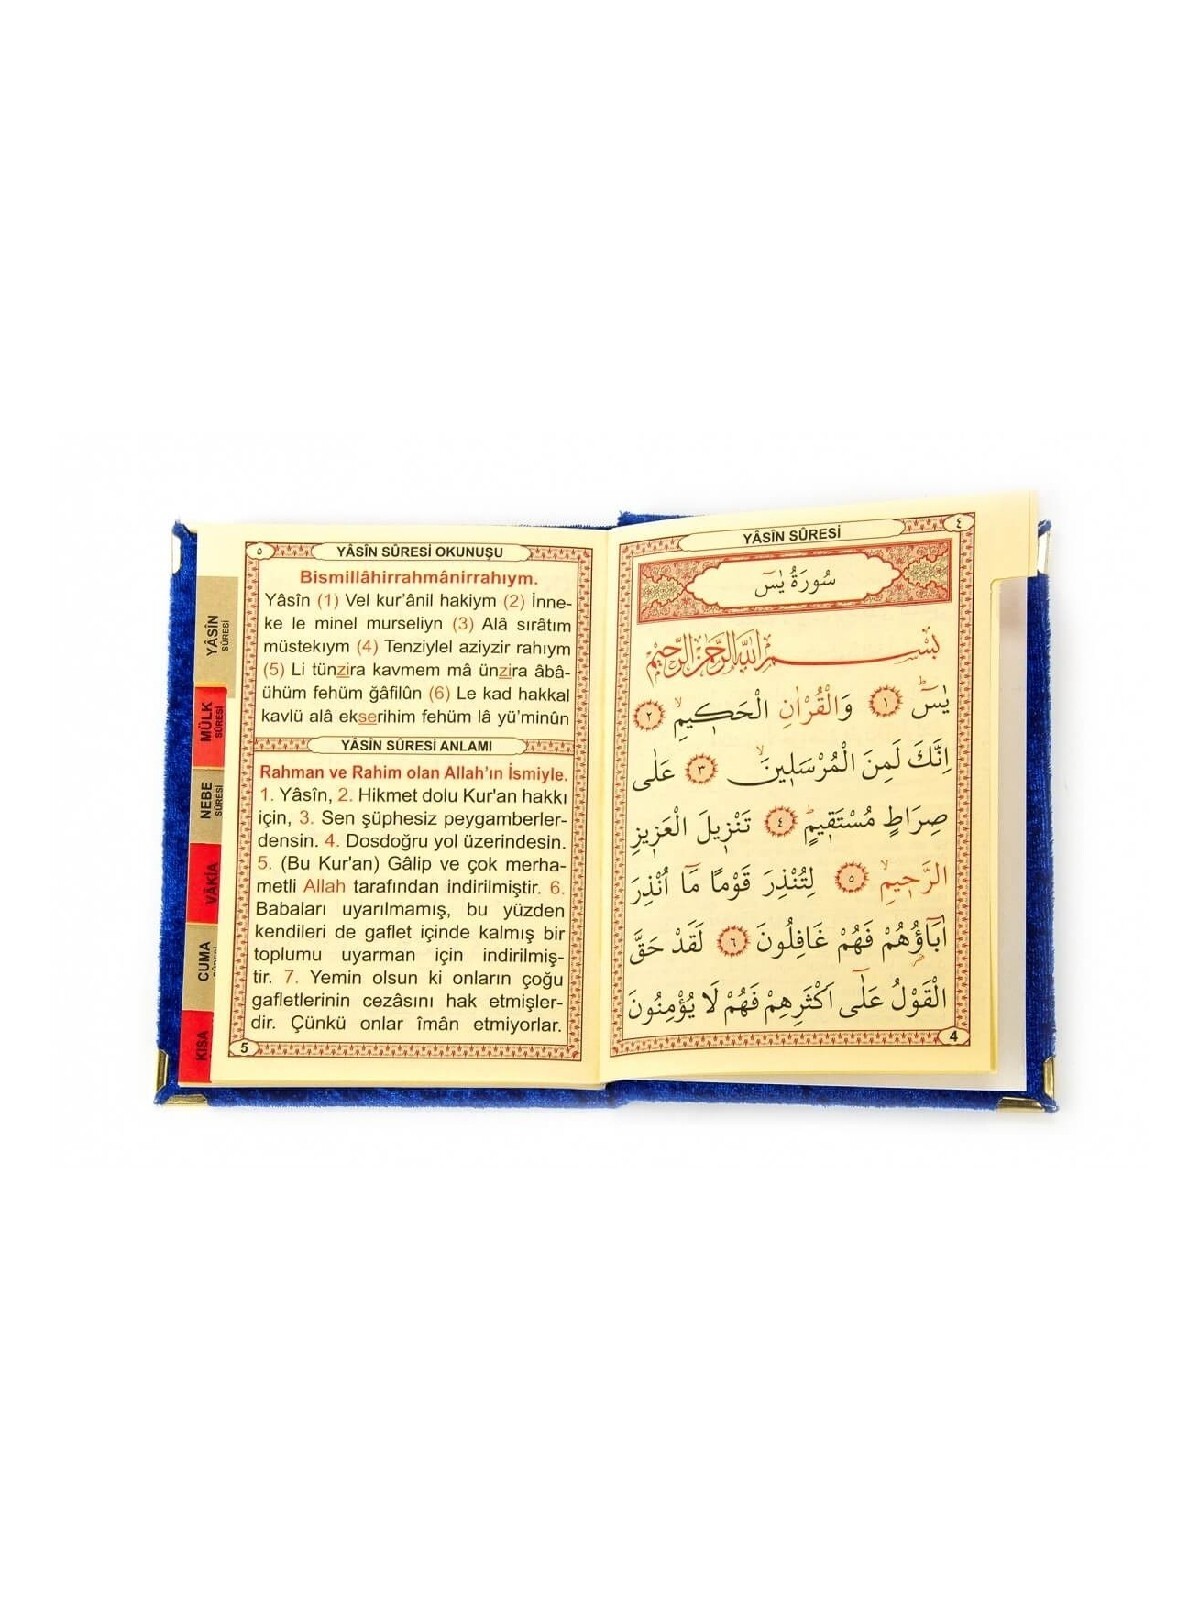 YÂSİN SÛRESİ
MÜLK SÛRESİ
NEBE SÛRESİ
VÂKIA
CUMA
KISA
٥
YÂSİN SÛRESİ OKUNUŞU
Bismillâhirrahmânirrahıym.
Yâsîn (1) Vel kur'ânil hakiym (2) İnne-
ke le minel murseliyn (3) Alâ sırâtım
müstekıym (4) Tenziylel aziyzir rahıym
(5) Li tünzira kavmem mâ ünzira âbâ-
ühüm fehüm ğâfilûn (6) Le kad hakkal
kavlü alâ ekserihim fehüm lâ yü'minûn
YÂSİN SÛRESİ ANLAMI
Rahman ve Rahim olan Allah'ın İsmiyle.
1. Yâsîn, 2. Hikmet dolu Kur'an hakkı
için, 3. Sen şüphesiz peygamberler-
densin. 4. Dosdoğru yol üzerindesin.
5. (Bu Kur'an) Gâlip ve çok merha-
metli Allah tarafından indirilmiştir. 6.
Babaları uyarılmamış, bu yüzden
kendileri de gaflet içinde kalmış bir
toplumu uyarman için indirilmiş-
tir. 7. Yemin olsun ki onların çoğu
gafletlerinin cezâsını hak etmişler-
dir. Çünkü onlar îmân etmiyorlar.
5
٤
YÂSİN SÛRESİ
سُورَةُ يٰسٓ
بِسْمِ اللّٰهِ الرَّحْمٰنِ الرَّحِيمِ
يٰسٓ ۚ ﴿١﴾ وَالْقُرْاٰنِ الْحَكِيمِۙ ﴿٢﴾
اِنَّكَ لَمِنَ الْمُرْسَلِينَۙ ﴿٣﴾ عَلٰى
صِرَاطٍ مُسْتَقِيمٍۜ ﴿٤﴾ تَنْزِيلَ الْعَزِيزِ
الرَّحِيمِۙ ﴿٥﴾ لِتُنْذِرَ قَوْمًا مَٓا اُنْذِرَ
اٰبَٓاؤُهُمْ فَهُمْ غَافِلُونَ ﴿٦﴾ لَقَدْ حَقَّ
الْقَوْلُ عَلٰٓى اَكْثَرِهِمْ فَهُمْ لَا يُؤْمِنُونَ
4